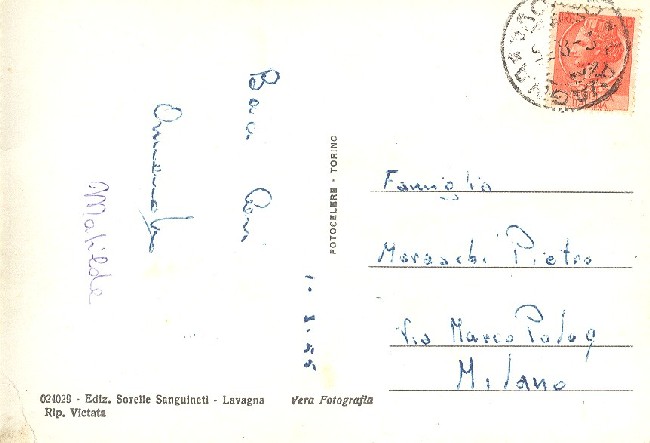 Baci Cari
Matilde
1.8.55
FOTOCELERE - TORINO
Famiglia
Maraschi Pietro
Via Marco Polo 9
Milano
024029 - Ediz. Sorelle Sanguineti - Lavagna
Rip. Vietata
Vera Fotografia